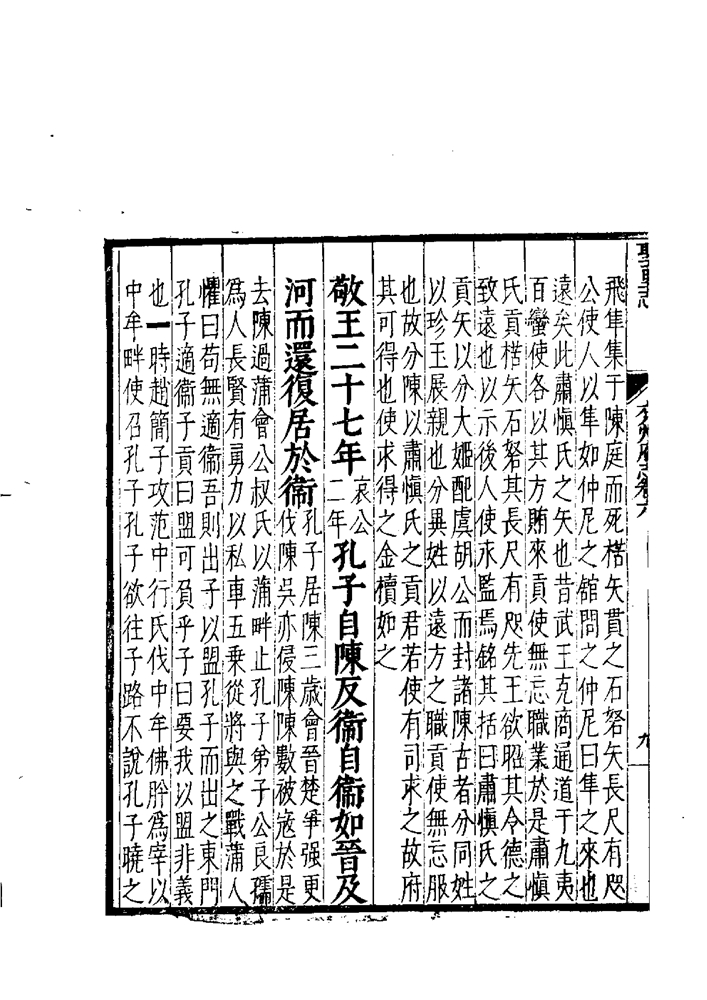 卷六
九
飛隼集于陳庭而死楛矢貫之石砮矢長尺有咫
公使人以隼如仲尼之館問之仲尼曰隼之來也
遠矣此肅慎氏之矢也昔武王克商通道于九夷
百蠻使各以其方賄來貢使無忘職業於是肅慎
氏貢楛矢石砮其長尺有咫先王欲昭其令德之
致遠也以示後人使永監焉銘其括曰肅慎氏之
貢矢以分大姬配虞胡公而封諸陳古者分同姓
以珍玉展親也分異姓以遠方之職貢使無忘服
也故分陳以肅慎氏之貢君若使有司求之故府
其可得也使求得之金櫝如之
敬王二十七年哀公二年孔子自陳反衞自衞如晉及
河而還復居於衞孔子居陳三歲會晉楚爭强更
伐陳吳亦侵陳陳數被寇於是
去陳過蒲會公叔氏以蒲畔止孔子弟子公良孺
爲人長賢有勇力以私車五乗從將與之戰蒲人
懼曰苟無適衞吾則出子以盟孔子而出之東門
孔子適衞子貢曰盟可負乎子曰要我以盟非義
也一時趙簡子攻范中行氏伐中牟佛肸爲宰以
中牟畔使召孔子孔子欲往子路不說孔子曉之